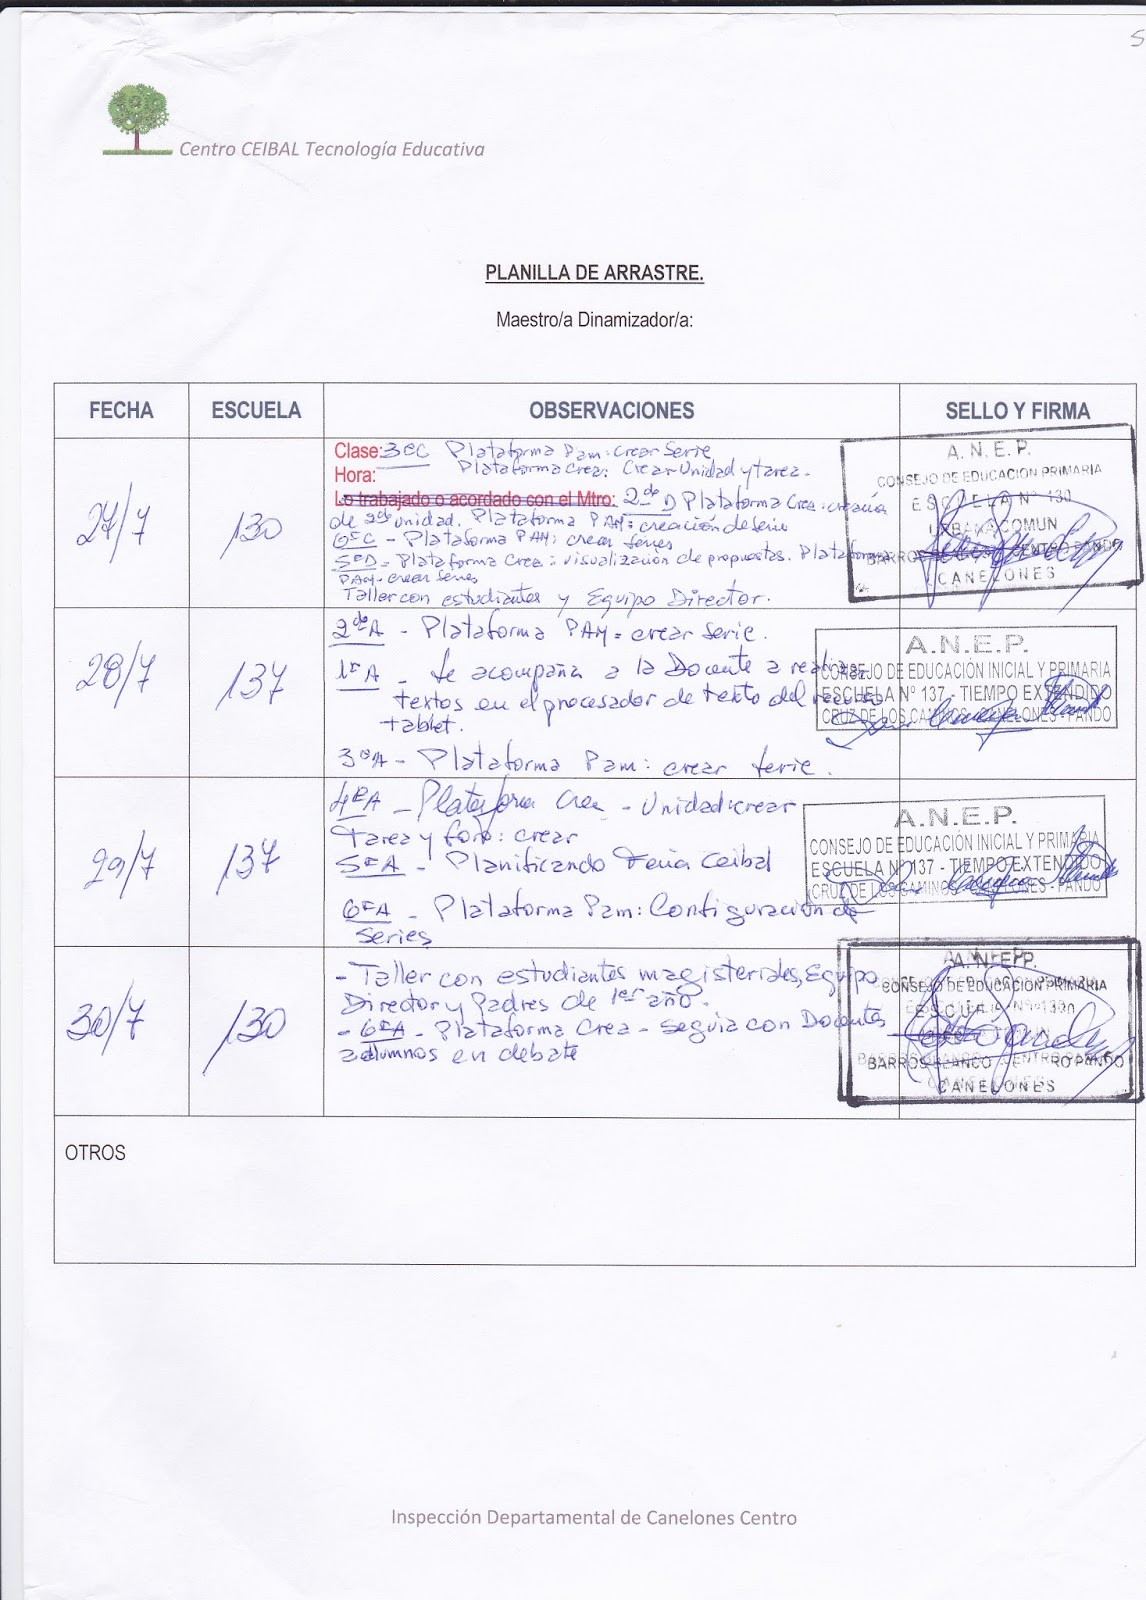 Centro CEIBAL Tecnología Educativa
PLANILLA DE ARRASTRE.
Maestro/a Dinamizador/a:
FECHA ESCUELA OBSERVACIONES SELLO Y FIRMA
27/7 130
Clase: 3ºC Plataforma Pam: crear Serie
Hora: Plataforma Crea: Crear Unidad y tarea.
Lo trabajado o acordado con el Mtro: 2do D Plataforma Crea: creación
de 2da unidad. Plataforma PAM: creación de serie
6ºC - Plataforma PAM: crear series
5ºD - Plataforma Crea: visualización de propuestas. Plataforma
PAM - crear series
Taller con estudiantes y Equipo Director.
A.N.E.P.
CONSEJO DE EDUCACION PRIMARIA
ESCUELA Nº 130
URBANA COMUN
BARROS BLANCOS CENTRO PANDO
CANELONES
28/7 137
2do A - Plataforma PAM: crear serie.
1ºA - Se acompaña a la Docente a realizar
textos en el procesador de texto del recurso
tablet.
3ºA - Plataforma Pam: crear serie.
A.N.E.P.
CONSEJO DE EDUCACIÓN INICIAL Y PRIMARIA
ESCUELA Nº 137 - TIEMPO EXTENDIDO
CRUZ DE LOS CAMINOS - CANELONES - PANDO
29/7 137
4ºA - Plataforma Crea - Unidad: crear
tarea y foro: crear
5ºA - Planificando Feria Ceibal
6ºA - Plataforma Pam: Configuración de
series
A.N.E.P.
CONSEJO DE EDUCACIÓN INICIAL Y PRIMARIA
ESCUELA Nº 137 - TIEMPO EXTENDIDO
CRUZ DE LOS CAMINOS - CANELONES - PANDO
30/7 130
- Taller con estudiantes magisteriales, Equipo
Director y Padres de 1er año.
- 6ºA - Plataforma Crea - seguía con Docentes
alumnos en debate
A.N.E.P.
CONSEJO DE EDUCACION PRIMARIA
ESCUELA Nº 130
BARROS BLANCO RO PANDO
CANELONES
OTROS
Inspección Departamental de Canelones Centro